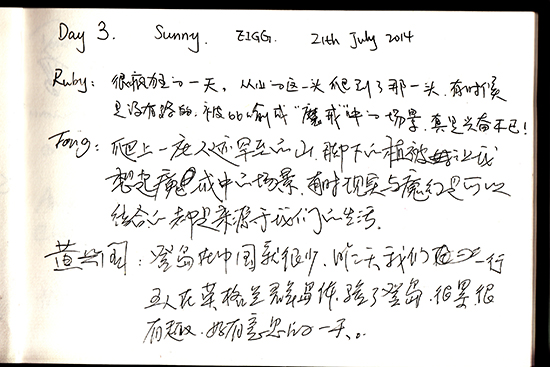 Day 3. Sunny. EIGG. 21th July 2014
Ruby: 很疯狂的一天，从山的这一头爬到了那一头，有时候
是没有路的，被bb喻成"魔戒"中的场景，真是兴奋不已！
Tong: 爬上一座人迹罕至的山，脚下的植被让我
想起魔戒中的场景，有时现实与魔幻是可以
结合的 都是来源于我们的生活.
黄 : 登岛在中国我很少，昨天我们一行
五人在英格兰 岛体验了登岛，很累很
有趣，好有意思的一天。